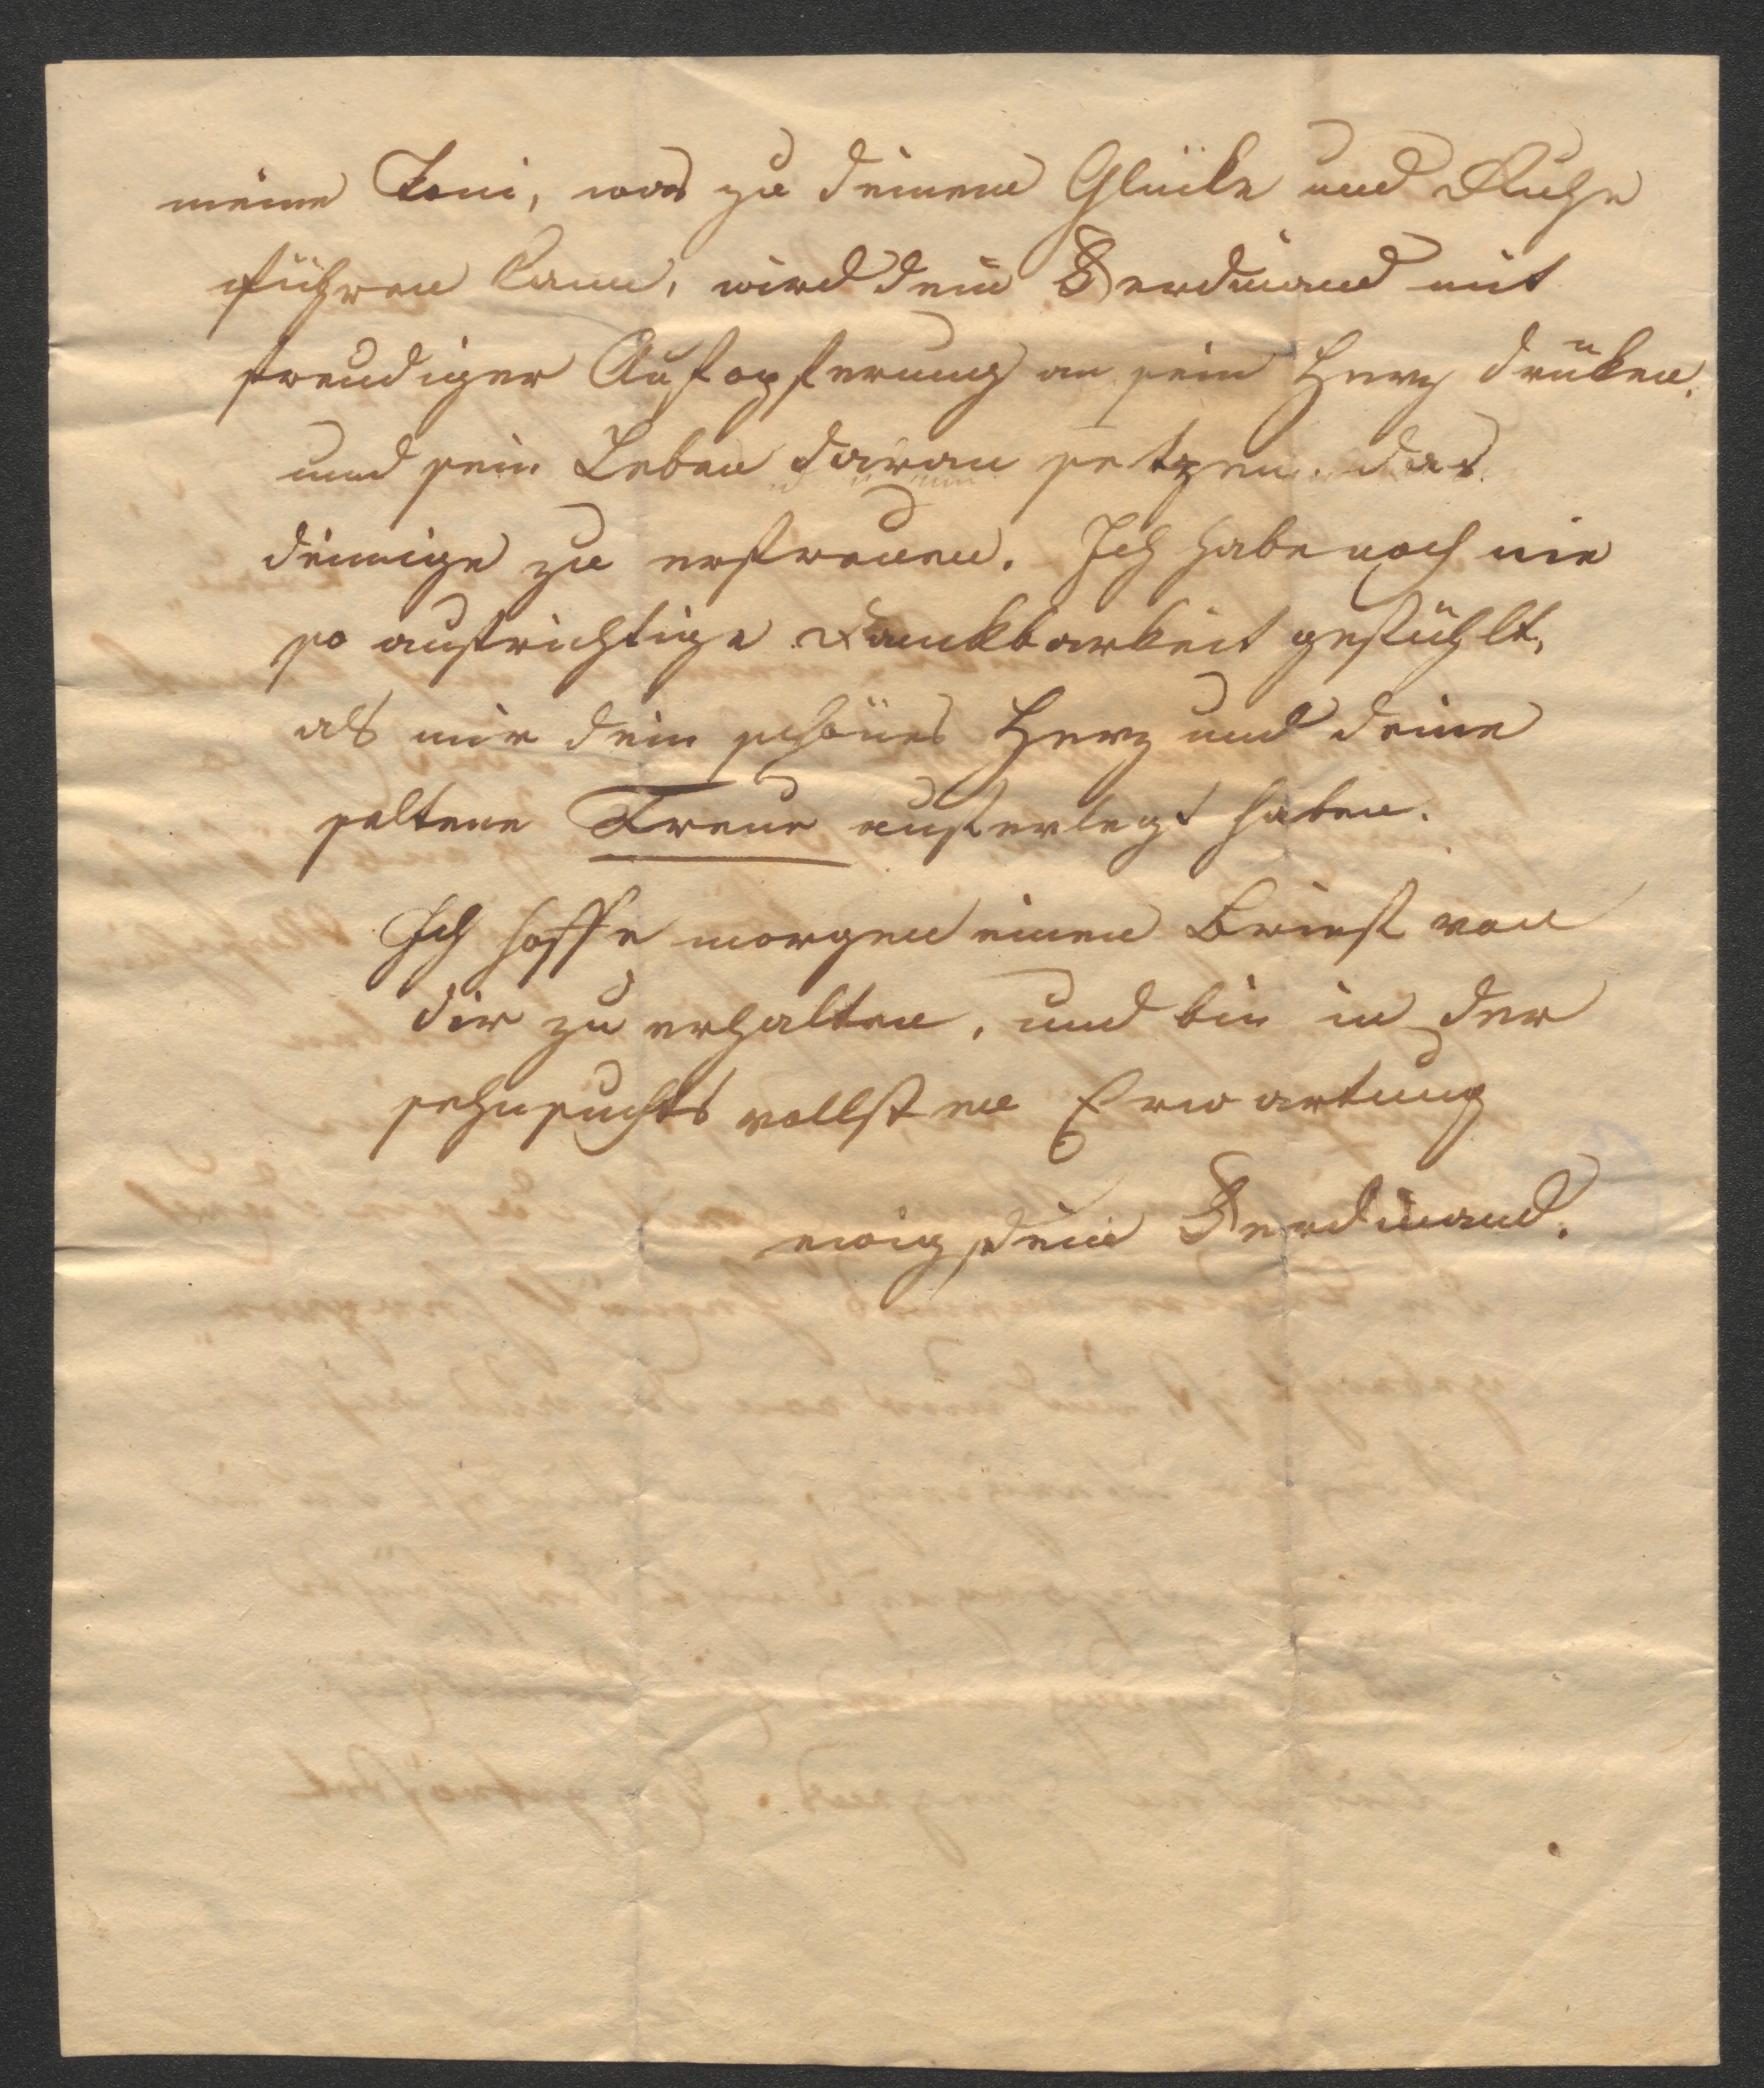 meine Toni, was zu deinem Glücke und Ruhe
führen kann, wird dein Ferdinand mit
freudiger Aufopferung an sein Herz drüken,
und sein Leben daran setzen das
deinige zu erfreuen. Ich habe noch nie
so aufrichtige Dankbarkeit gefühlt,
als mir dein schönes Herz und deine
seltene Treue auferlegt haben.
Ich hoffe morgen einen Brief von
dir zu erhalten, und bin in der
sehnsuchts vollsten Erwartung
ewig dein Ferdinand.